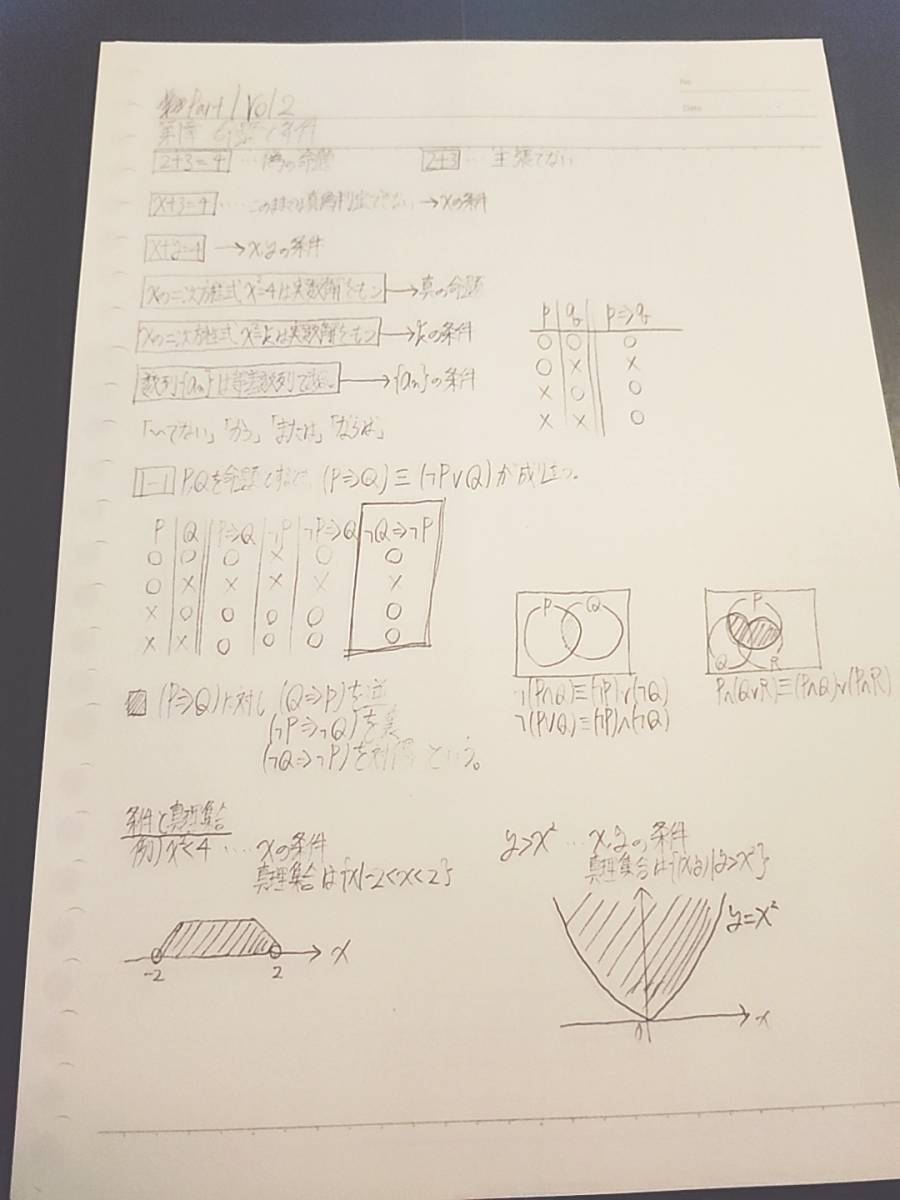 No.
Date
Part 1 Vol 2
第1章 命題と条件
2+3=4 … 偽の命題 2+3 … 主張でない
x+3=4 …… このままでは真偽判定できない → xの条件
x+y=4 → x,yの条件
xの二次方程式 x²=4は実数解をもつ → 真の命題
xの二次方程式 x²=kは実数解をもつ → kの条件
数列{an}は等差数列である。 → {an}の条件
p q p⇒q
○ ○ ○
○ × ×
× ○ ○
× × ○
「〜でない」「かつ」「または」「ならば」
1-1 P,Qを命題とすると、(P⇒Q)≡(¬P∨Q)が成り立つ。
P Q P⇒Q ¬P ¬P⇒Q ¬Q⇒¬P
○ ○ ○ × ○ ○
○ × × × × ×
× ○ ○ ○ ○ ○
× × ○ ○ ○ ○
P Q
¬(P∧Q)≡(¬P)∨(¬Q)
¬(P∨Q)≡(¬P)∧(¬Q)
P
Q R
P∧(Q∨R)≡(P∧Q)∨(P∧R)
(P⇒Q)に対し (Q⇒P)を逆
(¬P⇒¬Q)を裏
(¬Q⇒¬P)を対偶 という。
条件と真理集合
例) x²<4 … xの条件
真理集合は{x|-2<x<2}
-2 2 x
y>x² … x,yの条件
真理集合は{(x,y)|y>x²}
y=x²
0 x